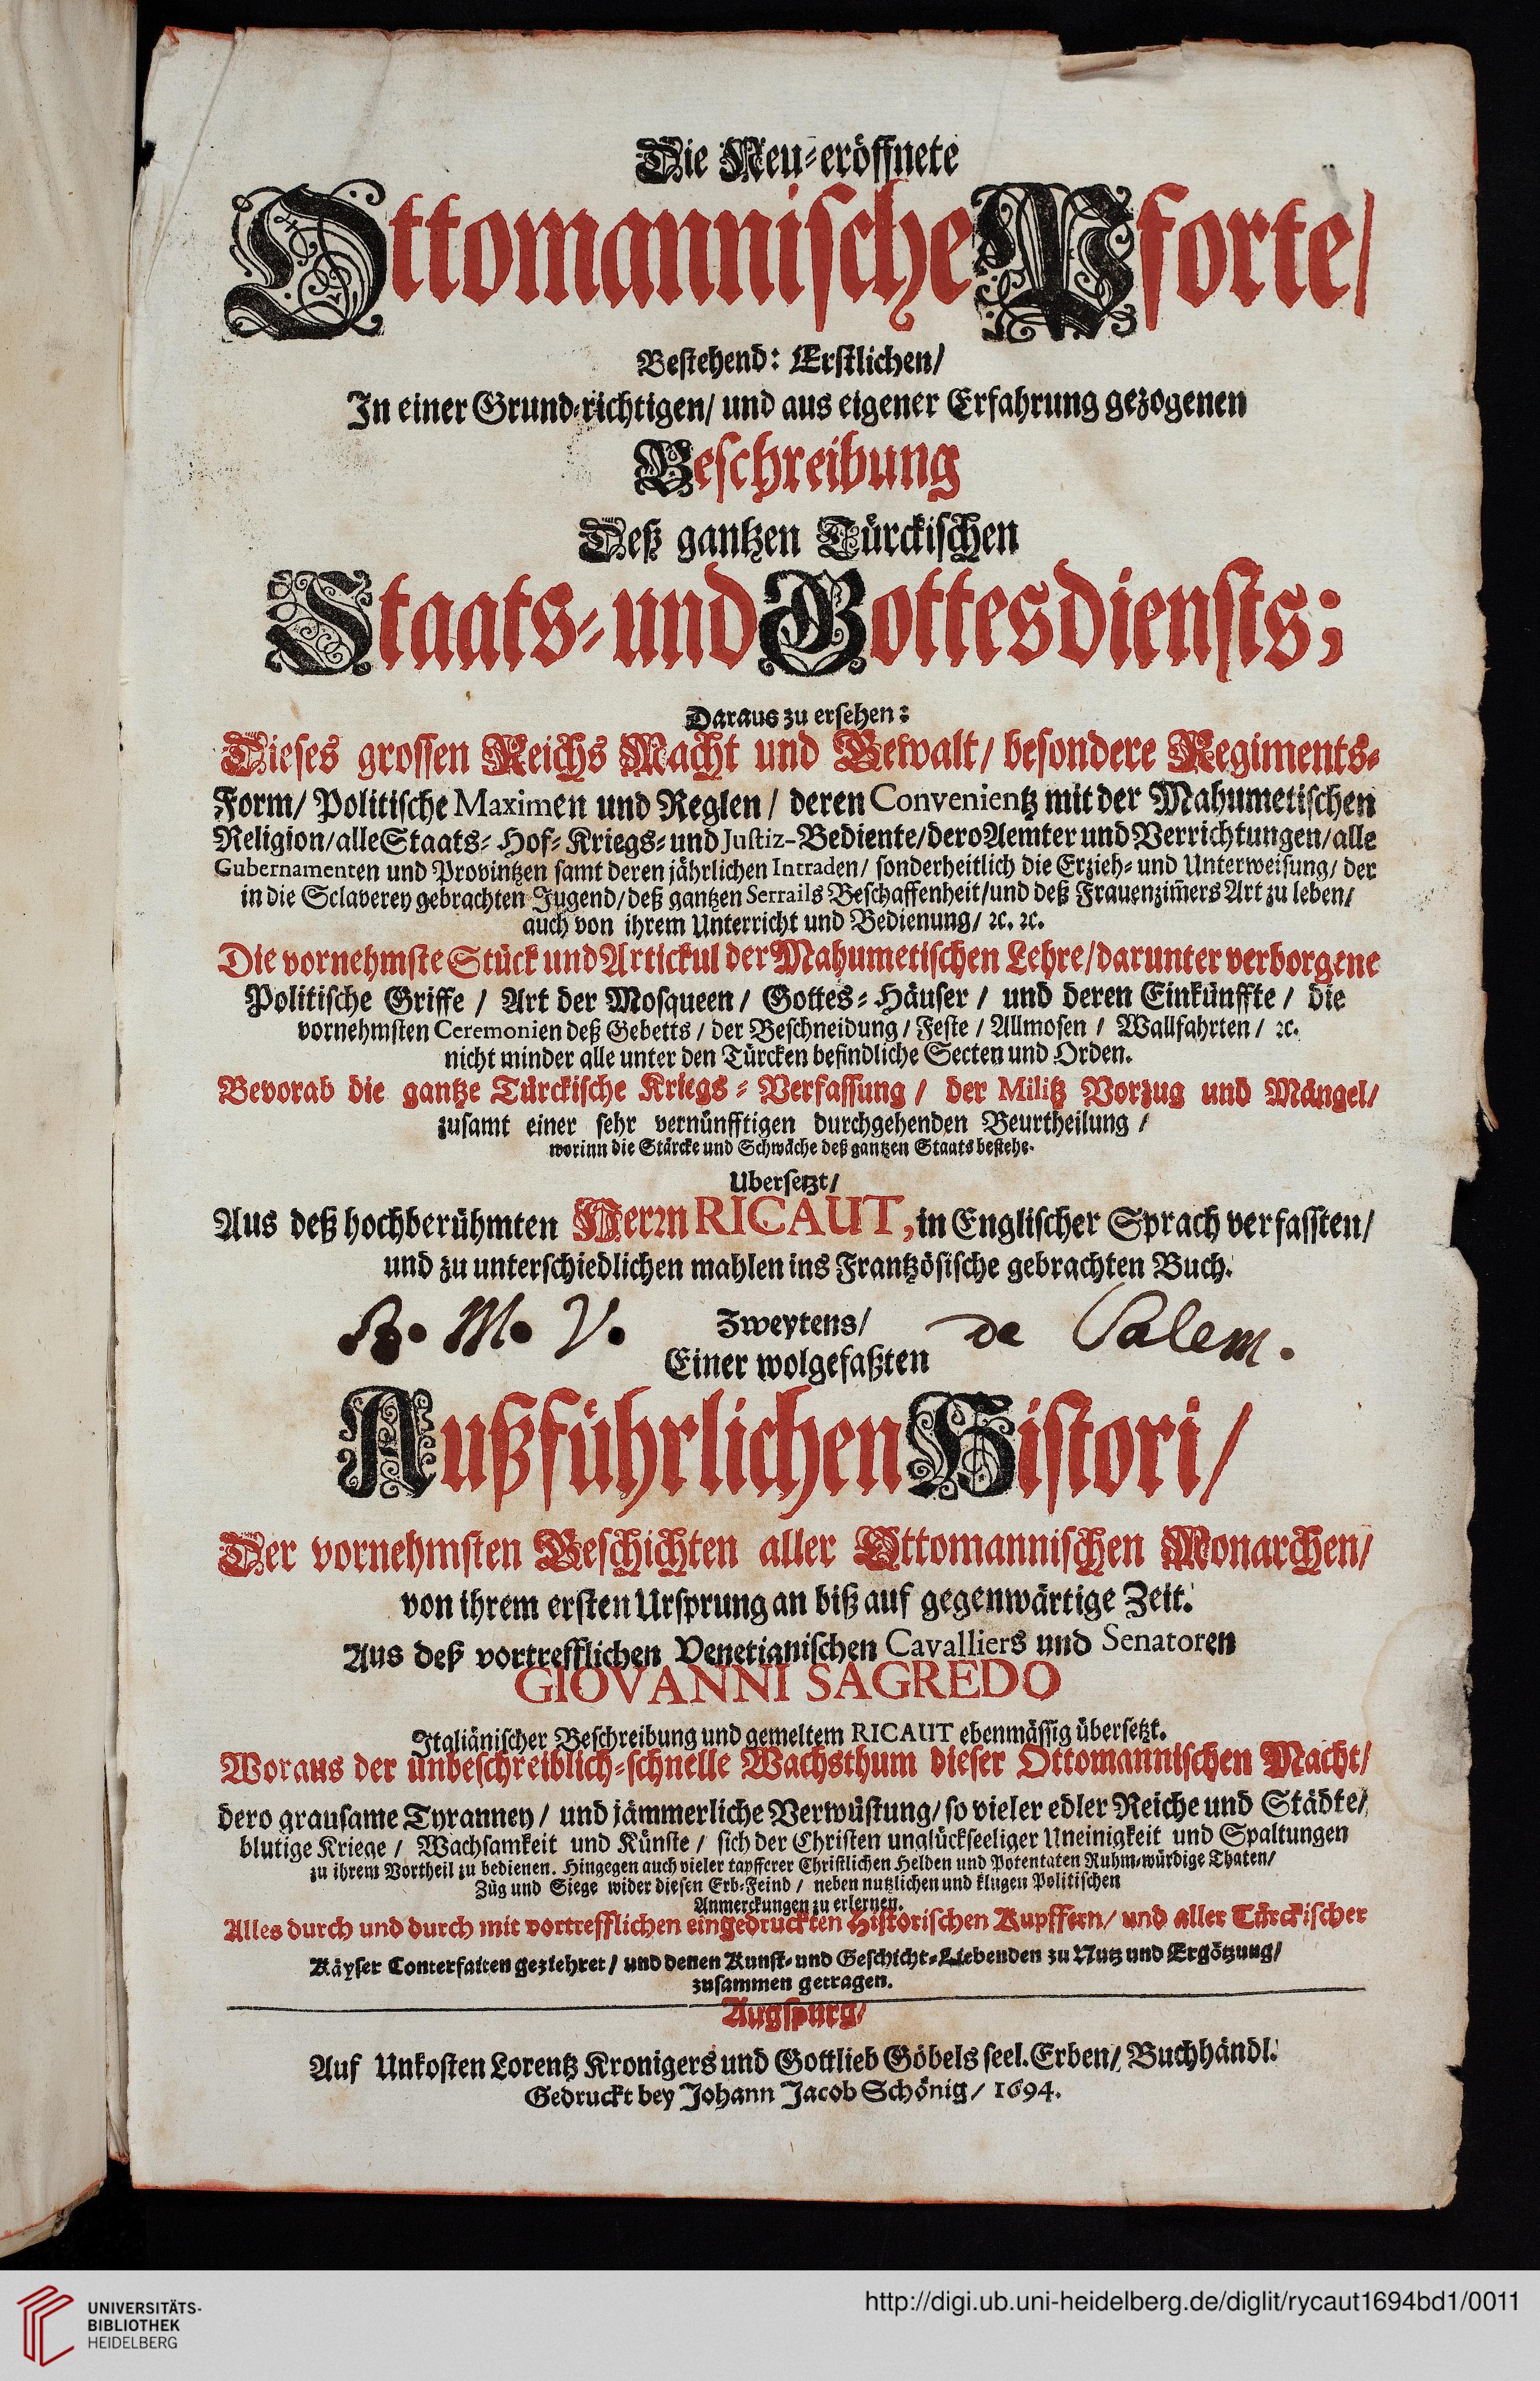 Die Neu-eröffnete
Ottomannische Pforte/
Bestehend: Erstlichen/
In einer Grund-richtigen/ und aus eigener Erfahrung gezogenen
Beschreibung
Deß gantzen Türckischen
Staats- und Gottesdiensts;
Daraus zu ersehen:
Dieses grossen Reichs Macht und Gewalt/ besondere Regiments-
Form/ Politische Maximen und Reglen/ deren Convenientz mit der Mahumetischen
Religion/ alle Staats- Hof- Kriegs- und Justiz-Bediente/ dero Aemter und Verrichtungen/ alle
Gubernamenten und Provintzen samt deren jährlichen Intraden/ sonderheitlich die Erzieh- und Unterweisung/ der
in die Sclaverey gebrachten Jugend/ deß gantzen Serrails Beschaffenheit/ und deß Frauenzim̃ers Art zu leben/
auch von ihrem Unterricht und Bedienung/ ꝛc. ꝛc.
Die vornehmste Stück und Artickul der Mahumetischen Lehre/ darunter verborgene
Politische Griffe/ Art der Mosqueen/ Gottes-Häuser/ und deren Einkünffte/ die
vornehmsten Ceremonien deß Gebetts/ der Beschneidung/ Feste/ Allmosen/ Wallfahrten/ ꝛc.
nicht minder alle unter den Türcken befindliche Secten und Orden.
Bevorab die gantze Türckische Kriegs-Verfassung/ der Militz Vorzug und Mängel/
zusamt einer sehr vernünfftigen durchgehenden Beurtheilung/
worinn die Stärcke und Schwäche deß gantzen Staats bestehe.
Ubersetzt/
Aus deß hochberühmten Herrn RICAUT, in Englischer Sprach verfassten/
und zu unterschiedlichen mahlen ins Frantzösische gebrachten Buch.
B. M. V. de Salem.
Zweytens/
Einer wolgefaßten
Außführlichen Histori/
Der vornehmsten Geschichten aller Ottomannischen Monarchen/
von ihrem ersten Ursprung an biß auf gegenwärtige Zeit.
Aus deß vortrefflichen Venetianischen Cavalliers und Senatoren
GIOVANNI SAGREDO
Italiänischer Beschreibung und gemeltem RICAUT ebenmässig übersetzt.
Woraus der unbeschreiblich-schnelle Wachsthum dieser Ottomannischen Macht/
dero grausame Tyranney/ und jämmerliche Verwüstung/ so vieler edler Reiche und Städte/
blutige Kriege/ Wachsamkeit und Künste/ sich der Christen unglückseeliger Uneinigkeit und Spaltungen
zu ihrem Vortheil zu bedienen. Hingegen auch vieler tapfferer Christlichen Helden und Potentaten Ruhm-würdige Thaten/
Züg und Siege wider diesen Erb-Feind/ neben nutzlichen und klugen Politischen
Anmerckungen zu erlernen.
Alles durch und durch mit vortrefflichen eingedruckten Historischen Kupffern/ und aller Türckischer
Käyser Conterfaiten geziehret/ und denen Kunst- und Geschicht-Liebenden zu Nutz und Ergötzung/
zusammen getragen.
Augspurg/
Auf Unkosten Lorentz Kronigers und Gottlieb Göbels seel. Erben/ Buchhändl.
Gedruckt bey Johann Jacob Schönig/ 1694.
UNIVERSITÄTS-
BIBLIOTHEK
HEIDELBERG
http://digi.ub.uni-heidelberg.de/diglit/rycaut1694bd1/0011